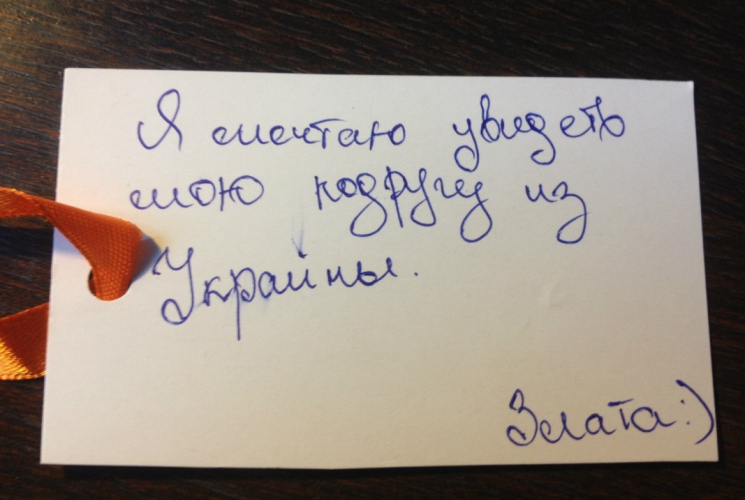 Я мечтаю увидеть
мою подругу из
Украины.
Злата:)